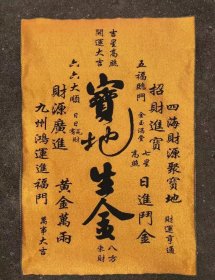 四海財源聚寶地
財運亨通
招財進寶
七星高照
日進鬥金
五福臨門
金玉滿堂
寶地生金
八方來財
吉星高照
開運大吉
六六大順
日日有財
財源廣進
黃金萬兩
九州鴻運進福門
萬事大吉